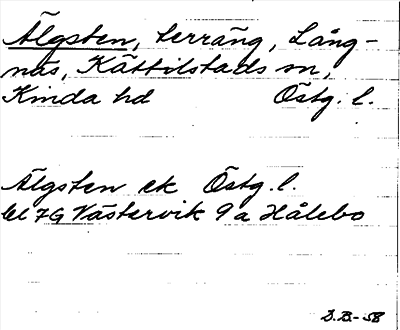 Älgsten, terräng, Lång-
näs, Kättilstads sn,
Kinda hd Östg. l.
Älgsten ek Östg. l.
bl 7G Västervik 9a Hålebo
S.B.-58